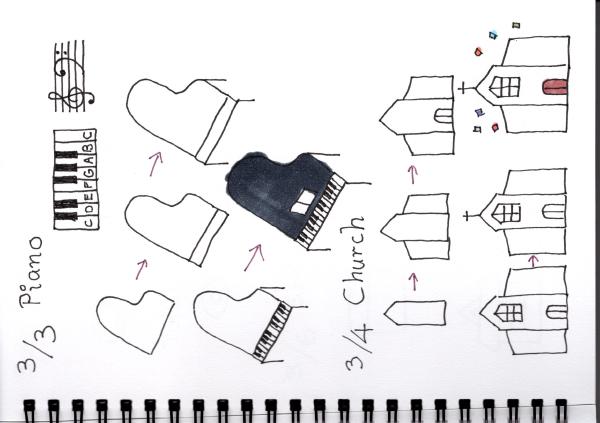 3/3 Piano
CDEFGABC
3/4 Church